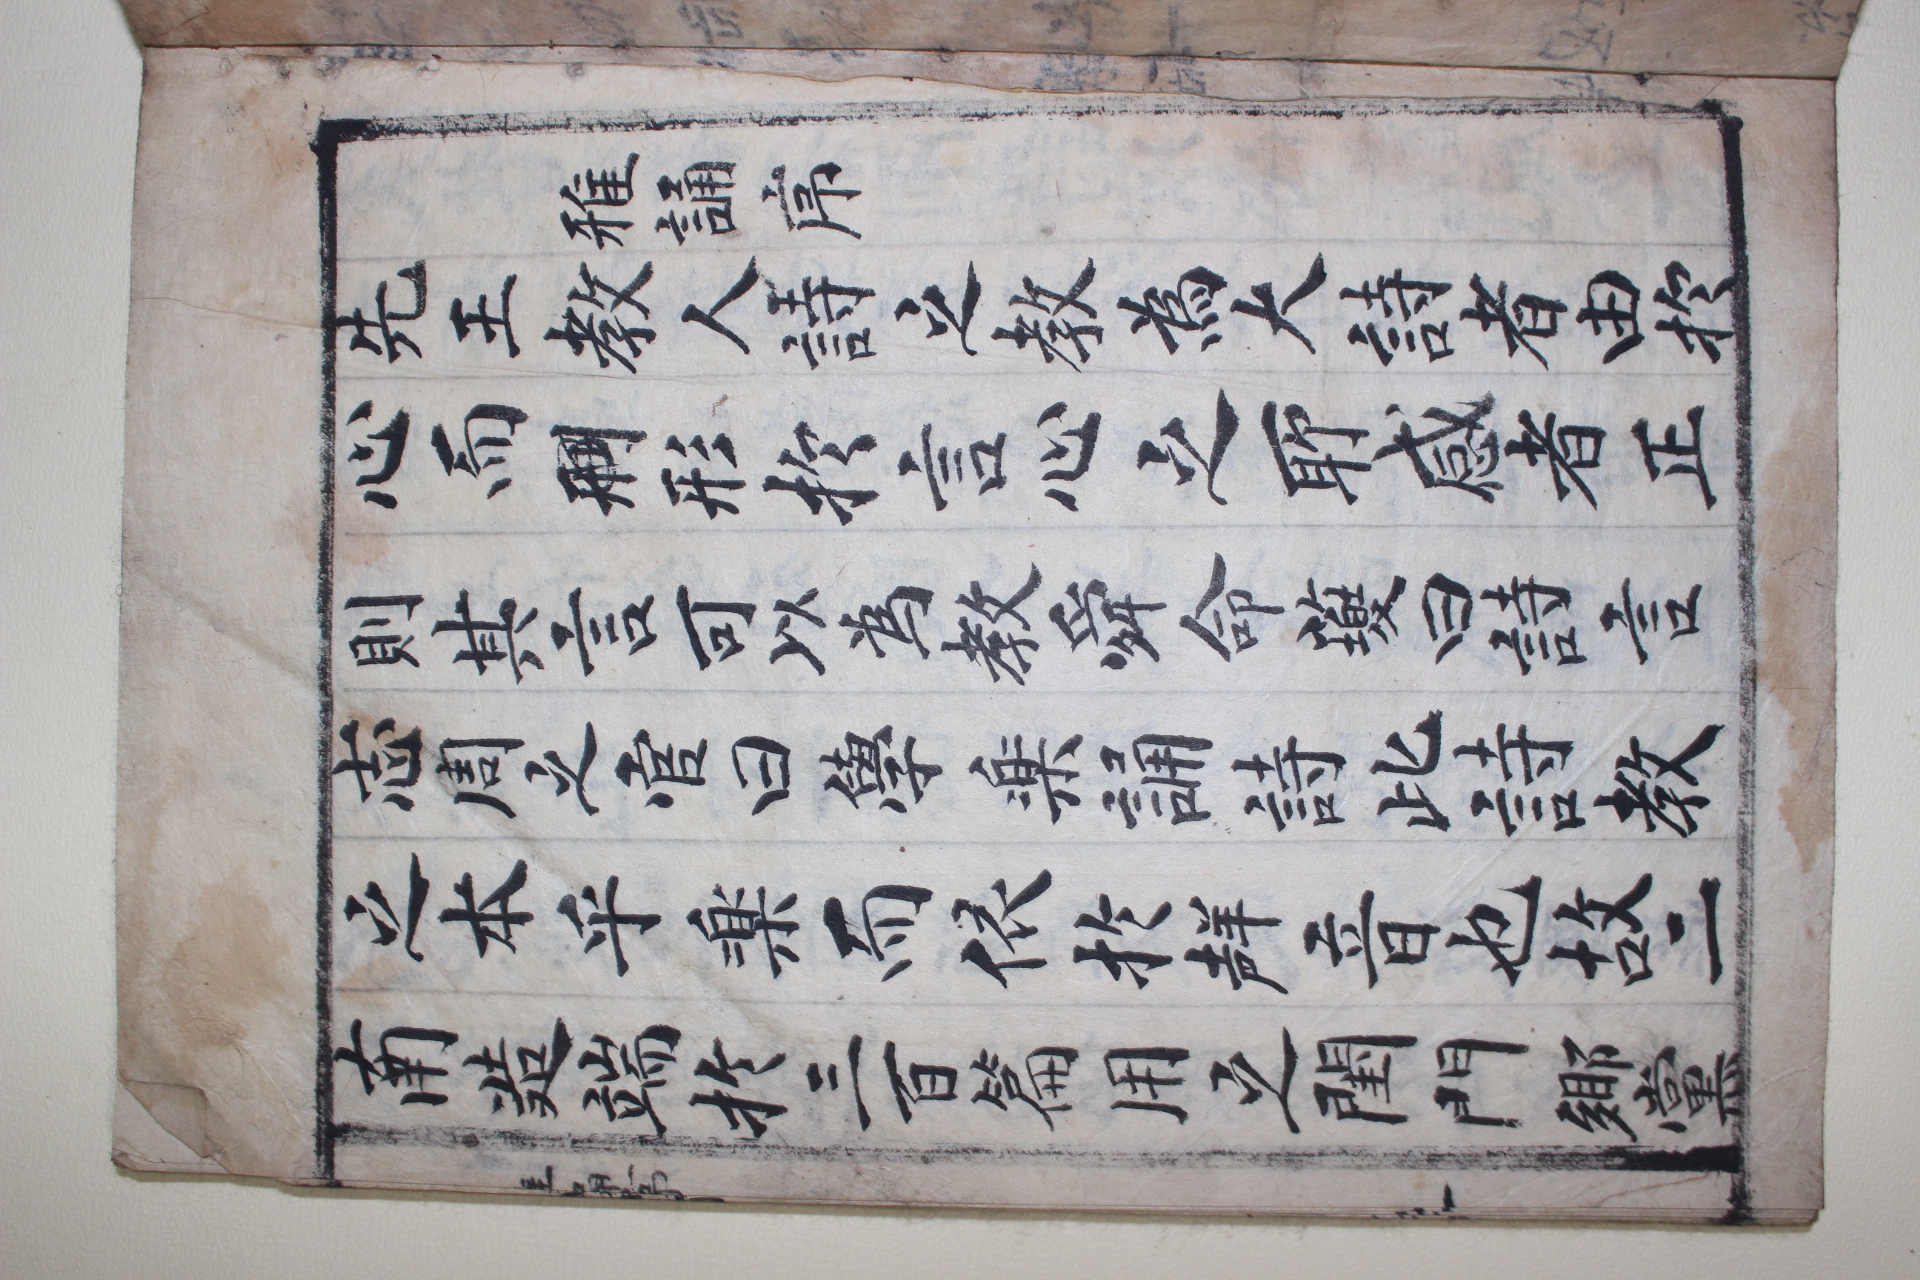 雅誦序
先王教人詩之教為大詩者由於
心而形於言心之所感者正
則其言可以為教舜命夔曰詩言
志周之官曰學楽誦詩此詩教
之本乎楽而依於音也故二
南造端於三百篇用之閨門鄉黨